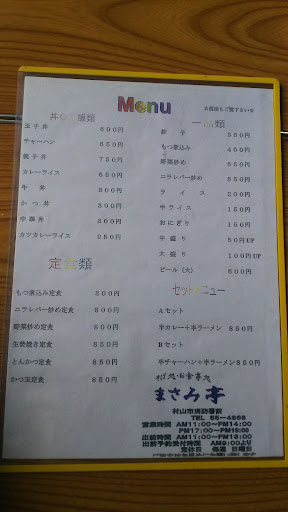 Menu
丼もの類
玉子丼 600円
チャーハン 650円
親子丼 750円
カレーライス 650円
牛丼 800円
かつ丼 800円
中華丼 800円
カツカレーライス 950円
定食類
もつ煮込み定食 800円
ニラレバー炒め定食 800円
野菜炒め定食 800円
生姜焼き定食 850円
とんかつ定食 850円
かつ玉定食 850円
一品類
餃子 550円
もつ煮込み 450円
野菜炒め 550円
ニラレバー炒め 550円
ライス 200円
半ライス 150円
おにぎり 150円
中盛り 50円UP
大盛り 100円UP
ビール(大) 600円
セットメニュー
Aセット
半カレー+半ラーメン 850円
Bセット
半チャーハン+半ラーメン 850円
そば処・お食事処
まさみ亭
村山市消防署前
TEL 55-4868
営業時間 AM11:00~PM14:00
PM17:00~PM19:00
出前時間 AM11:00~PM18:00
出前予約受付時間 AM9:00より
定休日 毎週 日曜日